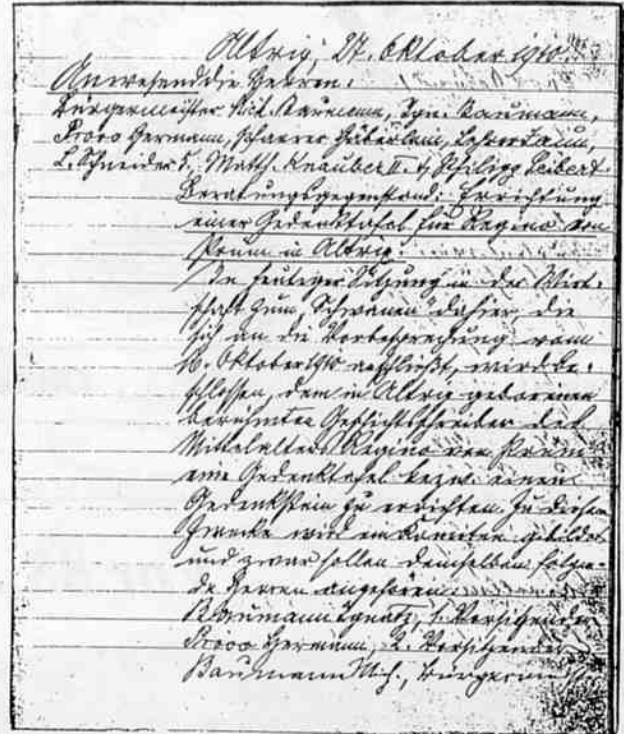 Altrip, 27. Oktober 1910.
Anwesend die Herren:
Bürgermeister Mich. Baumann, Ign. Baumann,
Provo Hermann, Pfarrer Häberlein, Lehrer
L. Schneider 5., Matth. Knauber II. & Philipp Leibert
Beratungsgegenstand: Errichtung
einer Gedenktafel für Regino von
Prüm in Altrip.
In heutiger Sitzung in der Wirt-
schaft zum "Schwanen" dahier, die
sich an die Vorbesprechung vom
16. Oktober 1910 anschließt, wird be-
schlossen, dem in Altrip geborenen
berühmten Geschichtsschreiber des
Mittelalters Regino von Prüm
eine Gedenktafel bezw. einen
Gedenkstein zu errichten. Zu diesem
Zwecke wird ein Komitee gebildet
und zwar sollen demselben folgen-
de Herren angehören:
Baumann Ignatz, 1. Vorsitzender
Provo Hermann, 2. Vorsitzender
Baumann Mich., Bürgerm